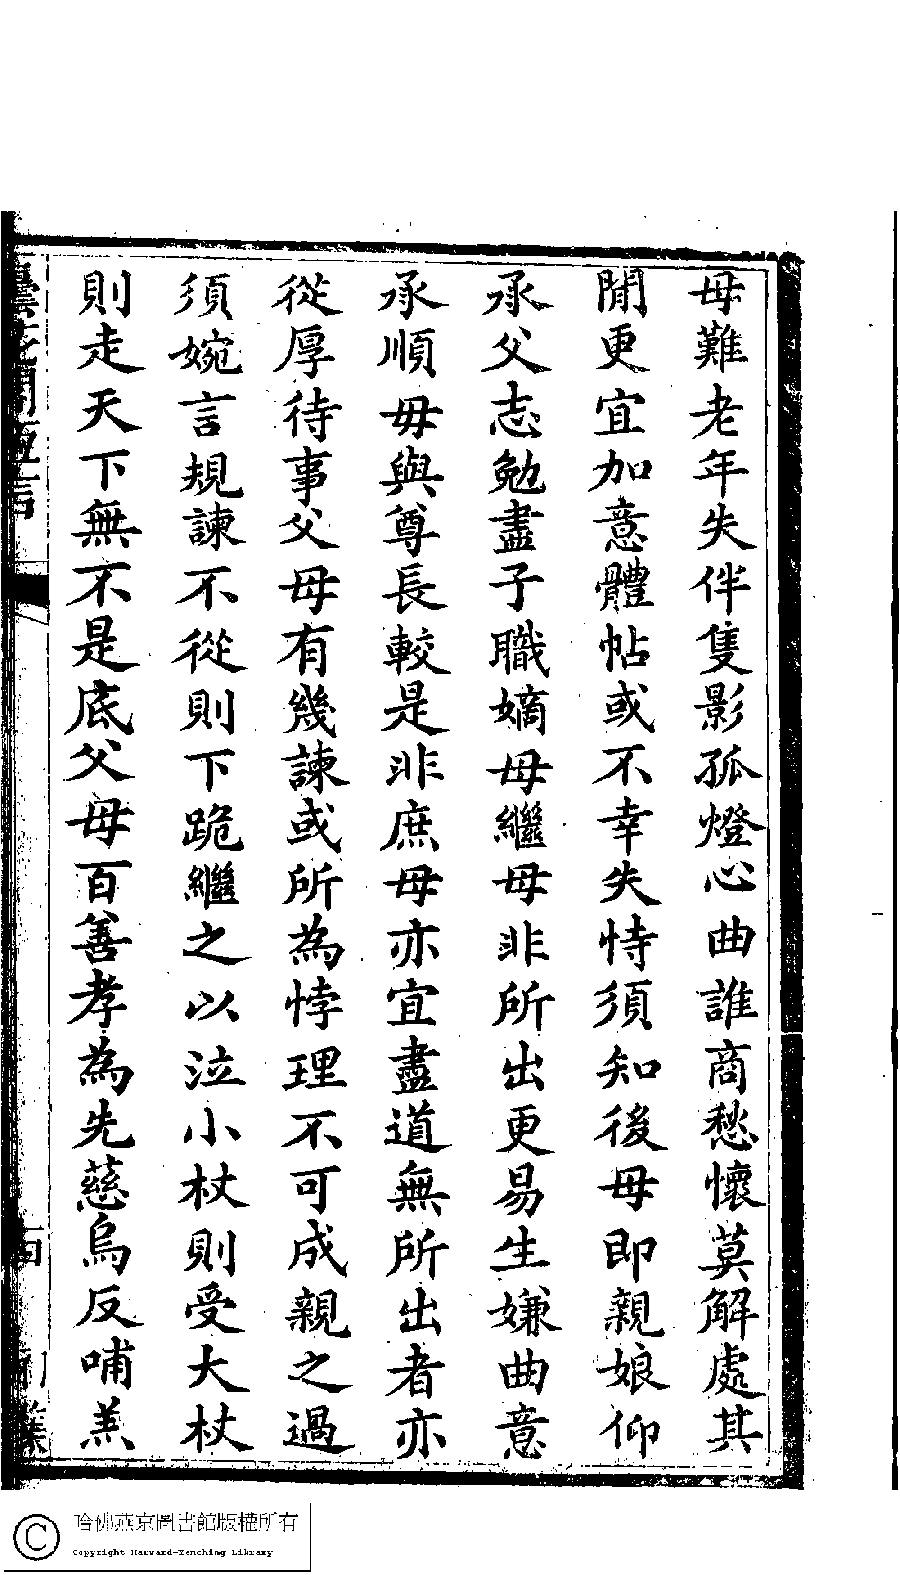 母難老年失伴隻影孤燈心曲誰商愁懷莫解處其
閒更宜加意體帖或不幸失恃須知後母即親娘仰
承父志勉盡子職嫡母繼母非所出更易生嫌曲意
承順毋與尊長較是非庶母亦宜盡道無所出者亦
從厚待事父母有幾諫或所為悖理不可成親之過
須婉言規諫不從則下跪繼之以泣小杖則受大杖
則走天下無不是底父母百善孝為先慈烏反哺羔
哈佛燕京圖書館版權所有
Copyright Harvard-Yenching Library